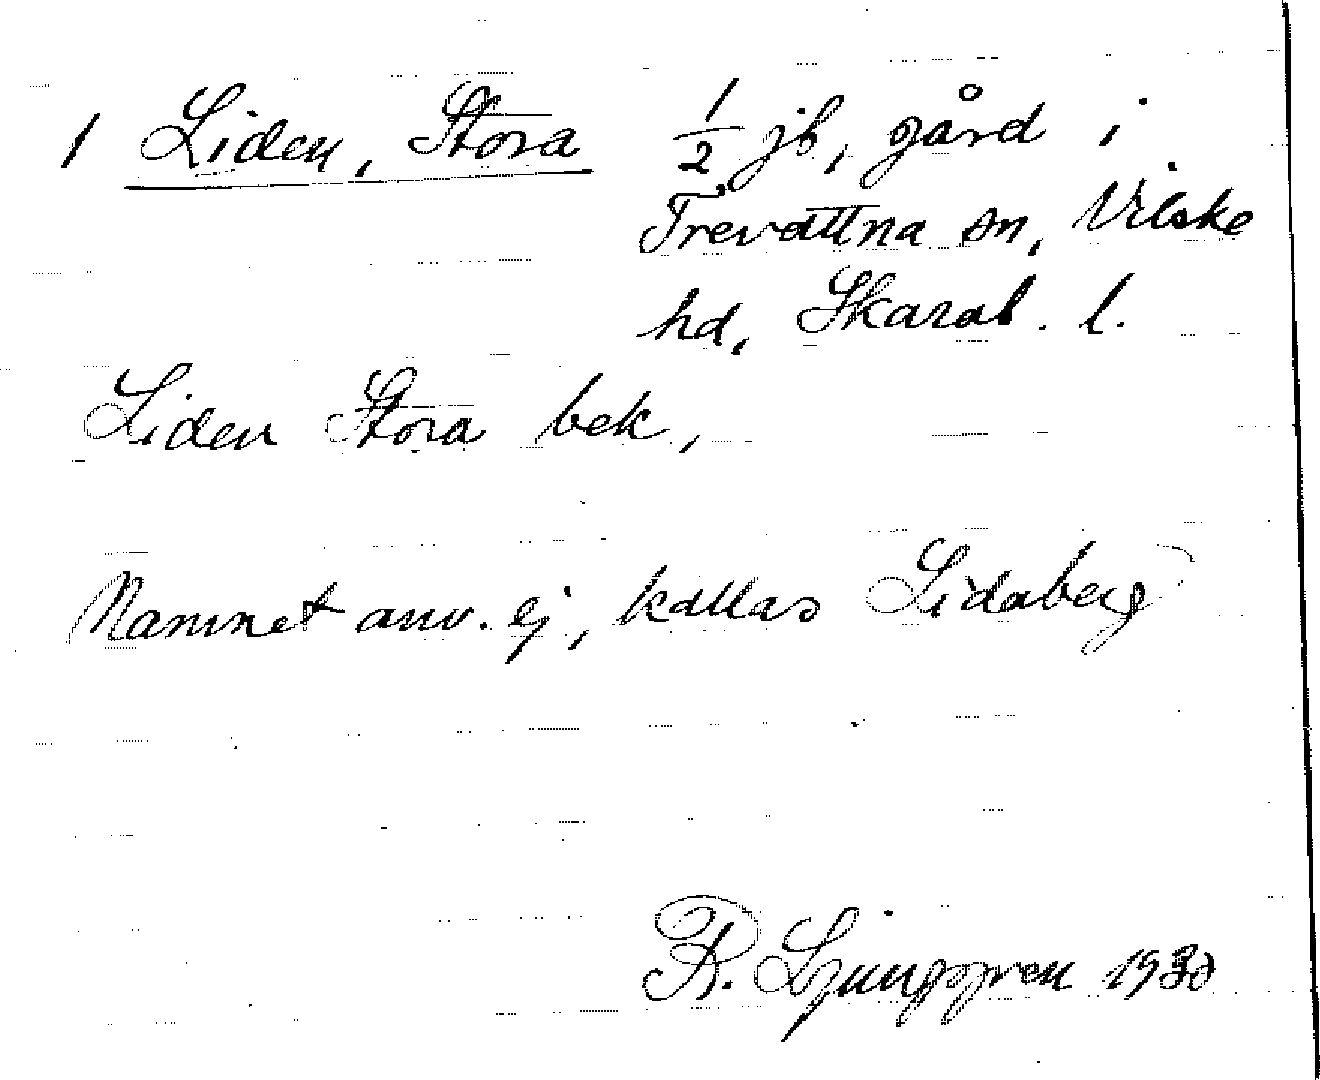 1 Liden, Stora 1/2 jb, gård i
Trevattna sn, Vilske
hd, Skarab. l.
Liden Stora bek,
Namnet anv. ej, kallas Lidaberg
R. Ljunggren 1930